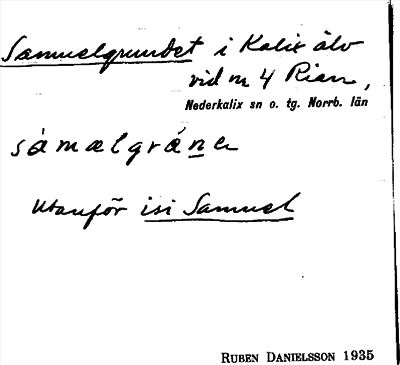 Samuelgrundet i Kalix älv
vid n 4 Rian,
Nederkalix sn o. tg. Norrb. län
sámælgránɐ
Utanför isi Samuel
RUBEN DANIELSSON 1935